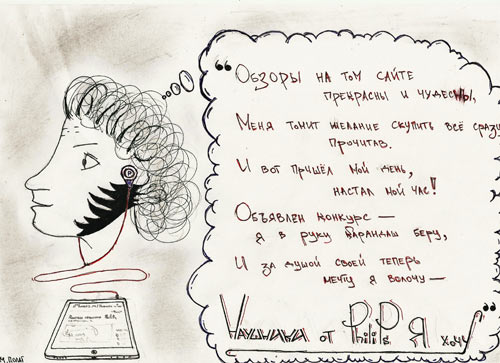 Обзоры на том сайте
прекрасны и чудесны,
Меня томит желание скупить всё сразу
прочитав.
И вот пришёл мой день,
настал мой час!
Объявлен конкурс —
я в руку карандаш беру,
И за душой своей теперь
мечту я волочу —
Наушники от Philips я хочу